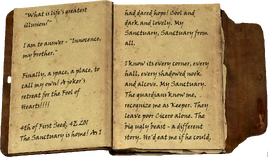 "What is life's greatest
illusion?"
I am to answer - "Innocence,
my brother."
Finally, a space, a place, to
call my own! A joker's
retreat for the Fool of
Hearts!!!!
4th of First Seed, 4E 201
The Sanctuary is home! As I
had dared hope! Cool and
dark and lovely. My
Sanctuary, Sanctuary from
all.
I know its every corner, every
hall, every shadowed nook
and alcove. My Sanctuary.
The guardians know me,
recognize me as Keeper. They
leave poor Cicero alone. The
big ugly beast - a different
story. He'd eat me if he could,